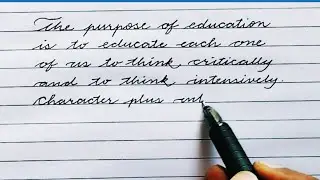 The purpose of education
is to educate each one
of us to think critically
and to think intensively.
Character plus int